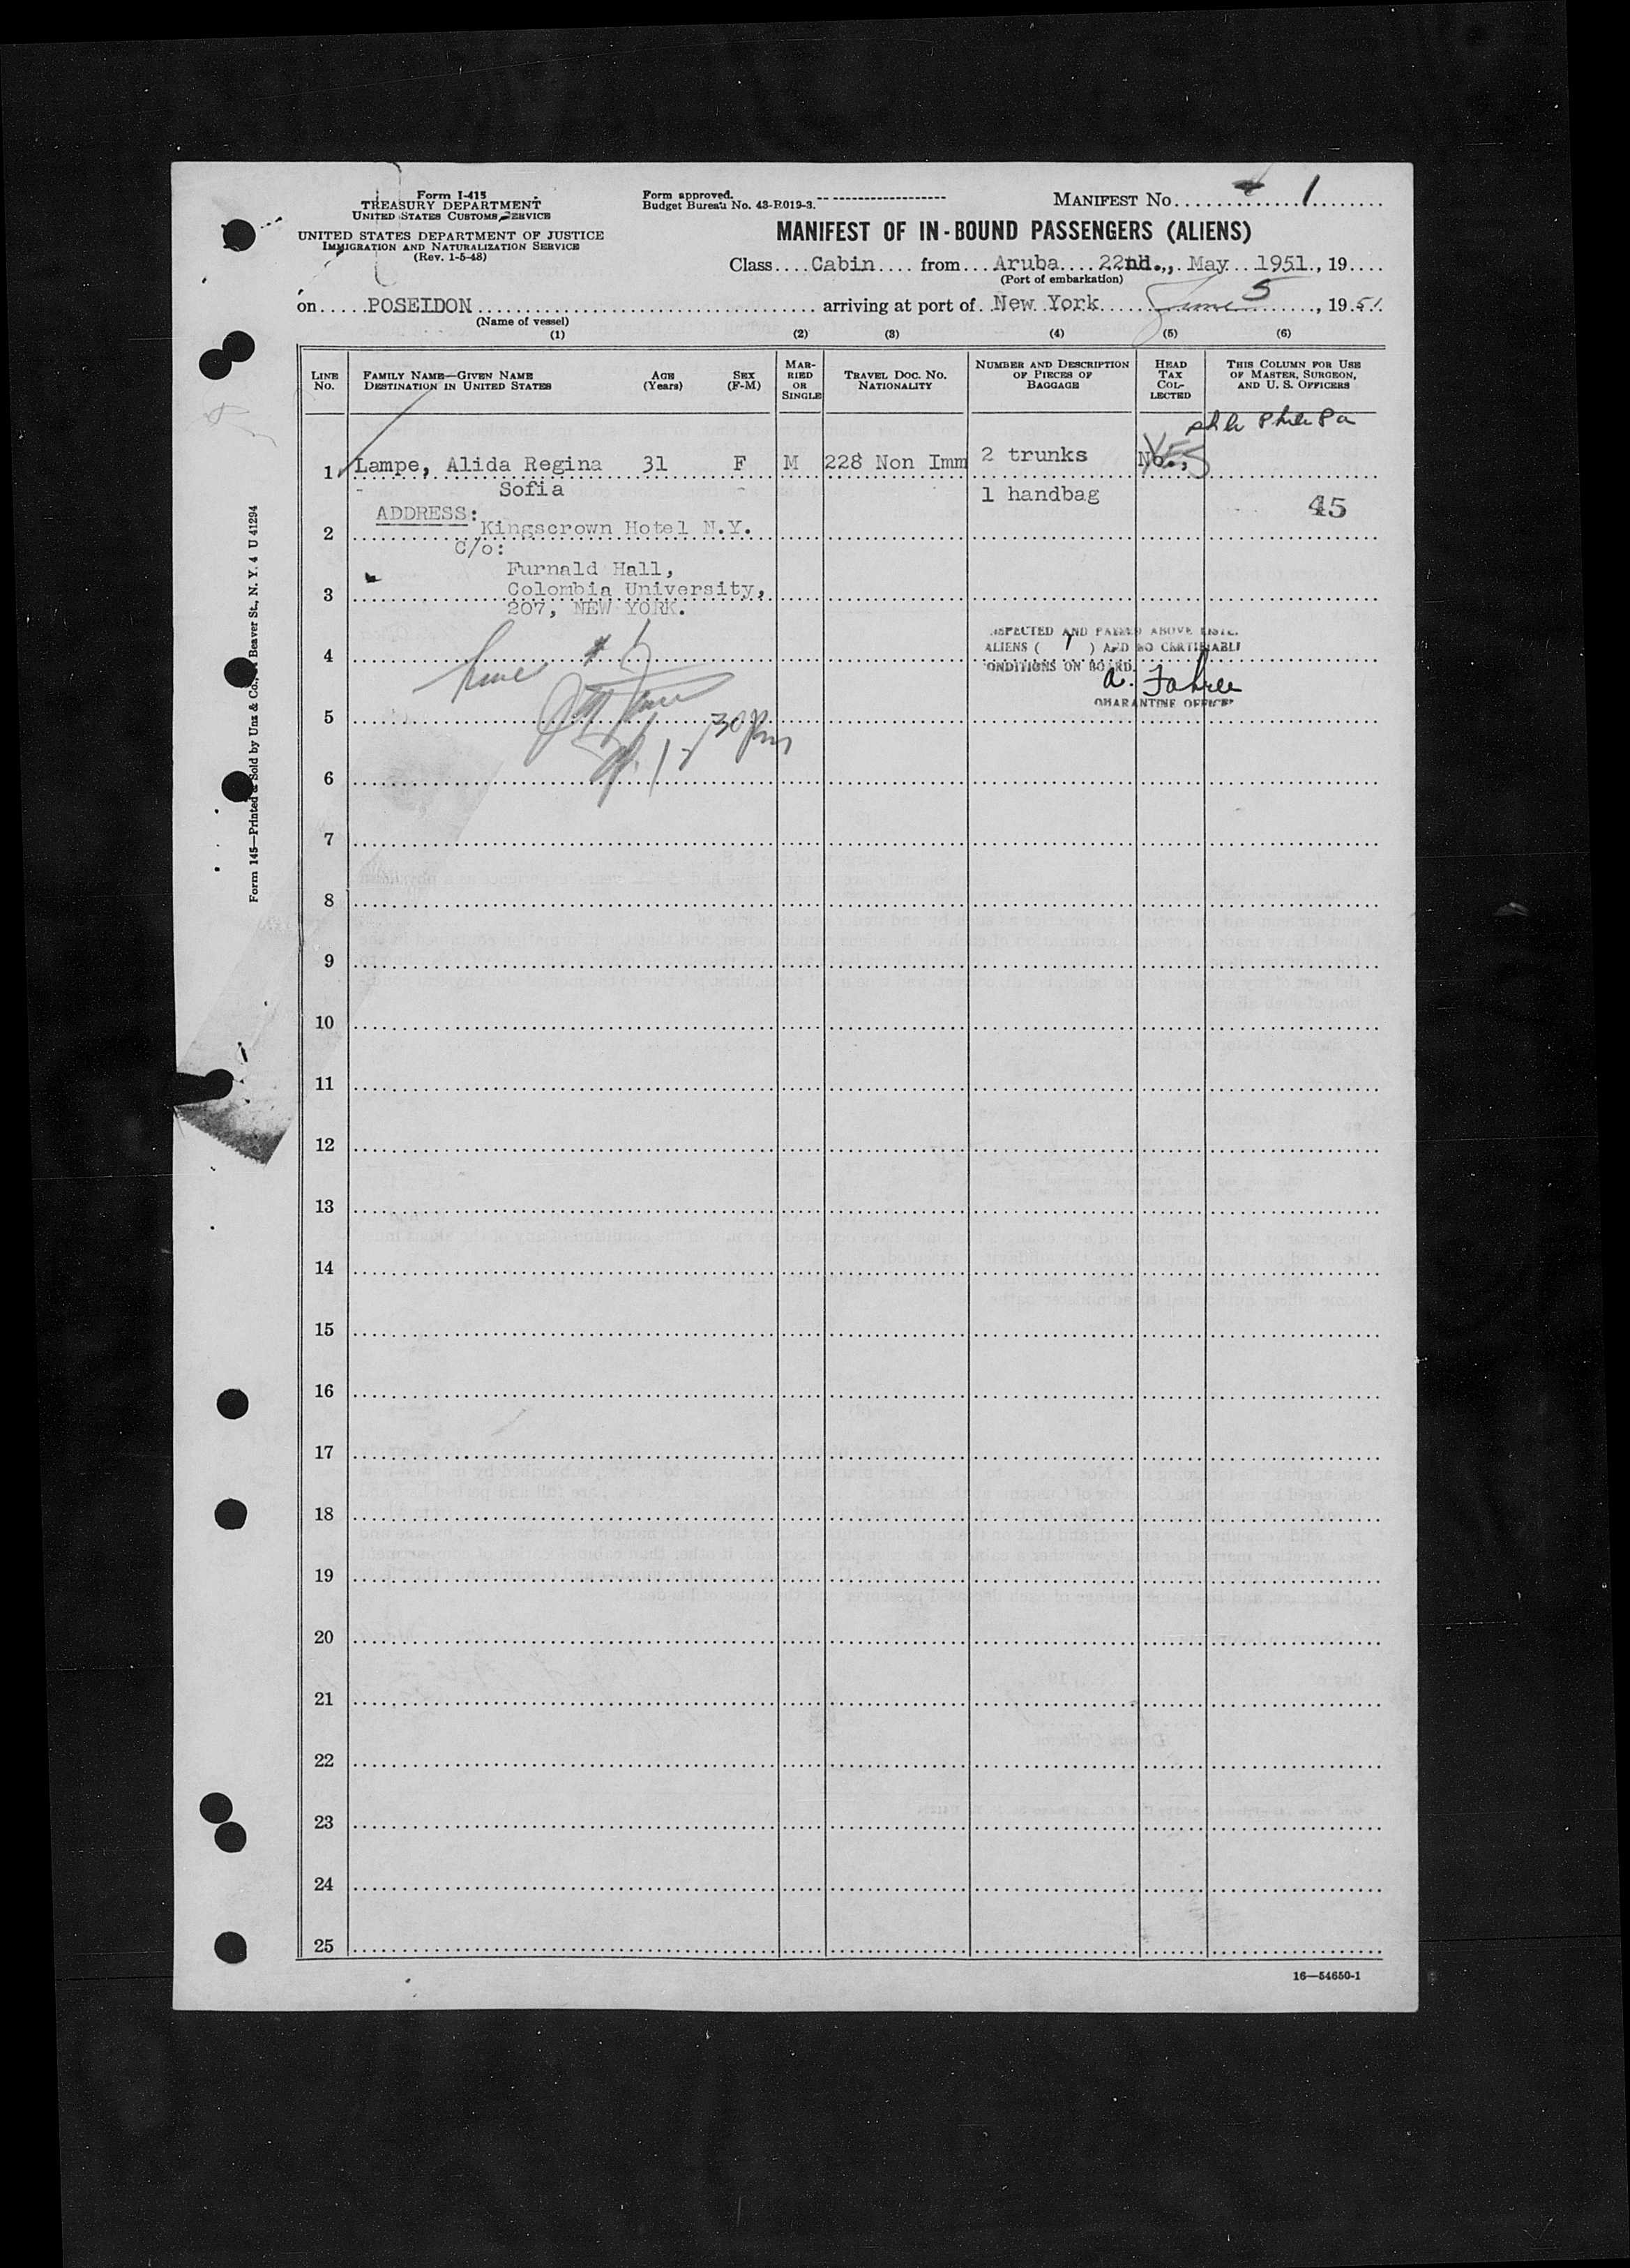 Form I-415
TREASURY DEPARTMENT
UNITED STATES CUSTOMS SERVICE
UNITED STATES DEPARTMENT OF JUSTICE
IMMIGRATION AND NATURALIZATION SERVICE
(Rev. 1-5-48)
Form approved.
Budget Bureau No. 43-R019-3.
MANIFEST No. 1
MANIFEST OF IN-BOUND PASSENGERS (ALIENS)
Class Cabin from Aruba 22nd., May 1951, 19
(Port of embarkation)
on POSEIDON arriving at port of New York June 5, 1951
(Name of vessel)
(1) (2) (3) (4) (5) (6)
LINE NO.
FAMILY NAME—GIVEN NAME
DESTINATION IN UNITED STATES
AGE (Years)
SEX (F-M)
MARRIED OR SINGLE
TRAVEL DOC. NO. NATIONALITY
NUMBER AND DESCRIPTION OF PIECES OF BAGGAGE
HEAD TAX COLLECTED
THIS COLUMN FOR USE OF MASTER, SURGEON, AND U. S. OFFICERS
Phila Pa
1 Lampe, Alida Regina 31 F M 228 Non Imm 2 trunks No., YES
Sofia 1 handbag 45
ADDRESS:
2 Kingscrown Hotel N.Y.
C/o:
Furnald Hall,
3 Colombia University,
207, NEW YORK.
INSPECTED AND PASSED ABOVE LISTE
4 ALIENS ( 1 ) AND NO CERTIFIABLE
CONDITIONS ON BOARD.
A.
QUARANTINE OFFICER
5
30 Pm
6
7
8
9
10
11
12
13
14
15
16
17
18
19
20
21
22
23
24
25
16—54650-1
Form 145—Printed & Sold by Unz & Co., Beaver St., N. Y. 4 U 41294